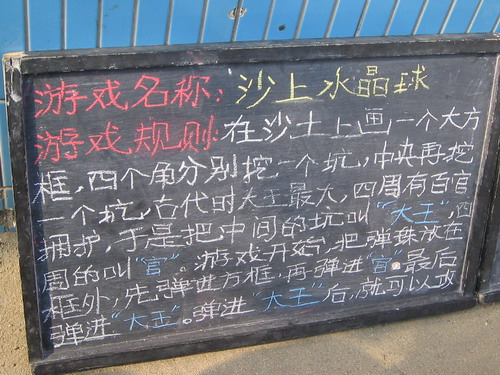 游戏名称：沙上水晶球
游戏规则：在沙土上画一个大方
框，四个角分别挖一个坑，中央再挖
一个坑，古代时大王最大，四周有百官
拥护，于是把中间的坑叫“大王”，四
周的叫“官”。游戏开始，把弹珠放在
框外，先弹进方框，再弹进“官”。最后
弹进“大王”。弹进“大王”后，就可以攻